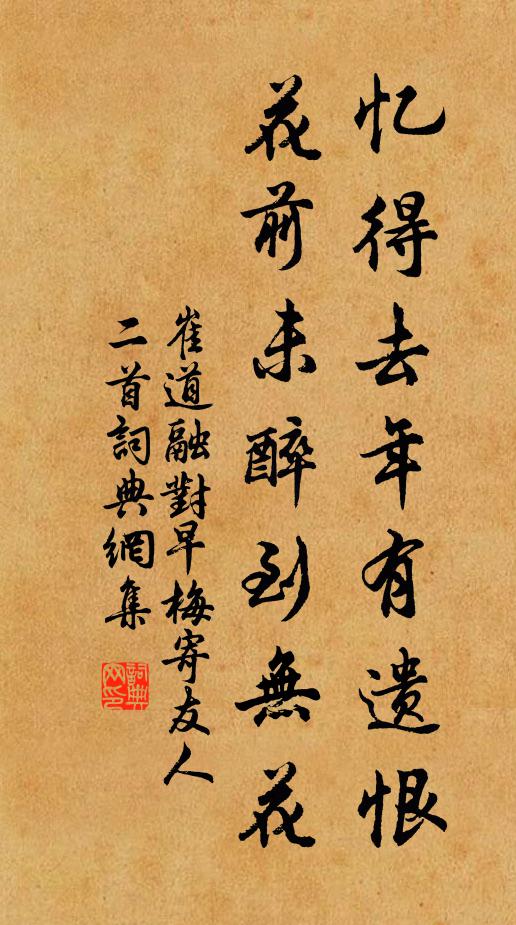 忆得去年有遗恨
花前未醉到無花
崔道融對早梅寄友人
二首詞典網集
詞典
网印